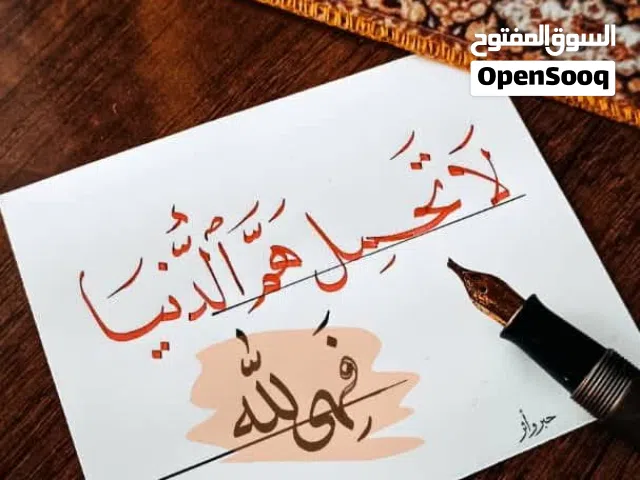 السوق المفتوح
OpenSooq
لَا تَحمِل هَمَّ الدُّنيَا
فَهِى لله
حبر وأثر